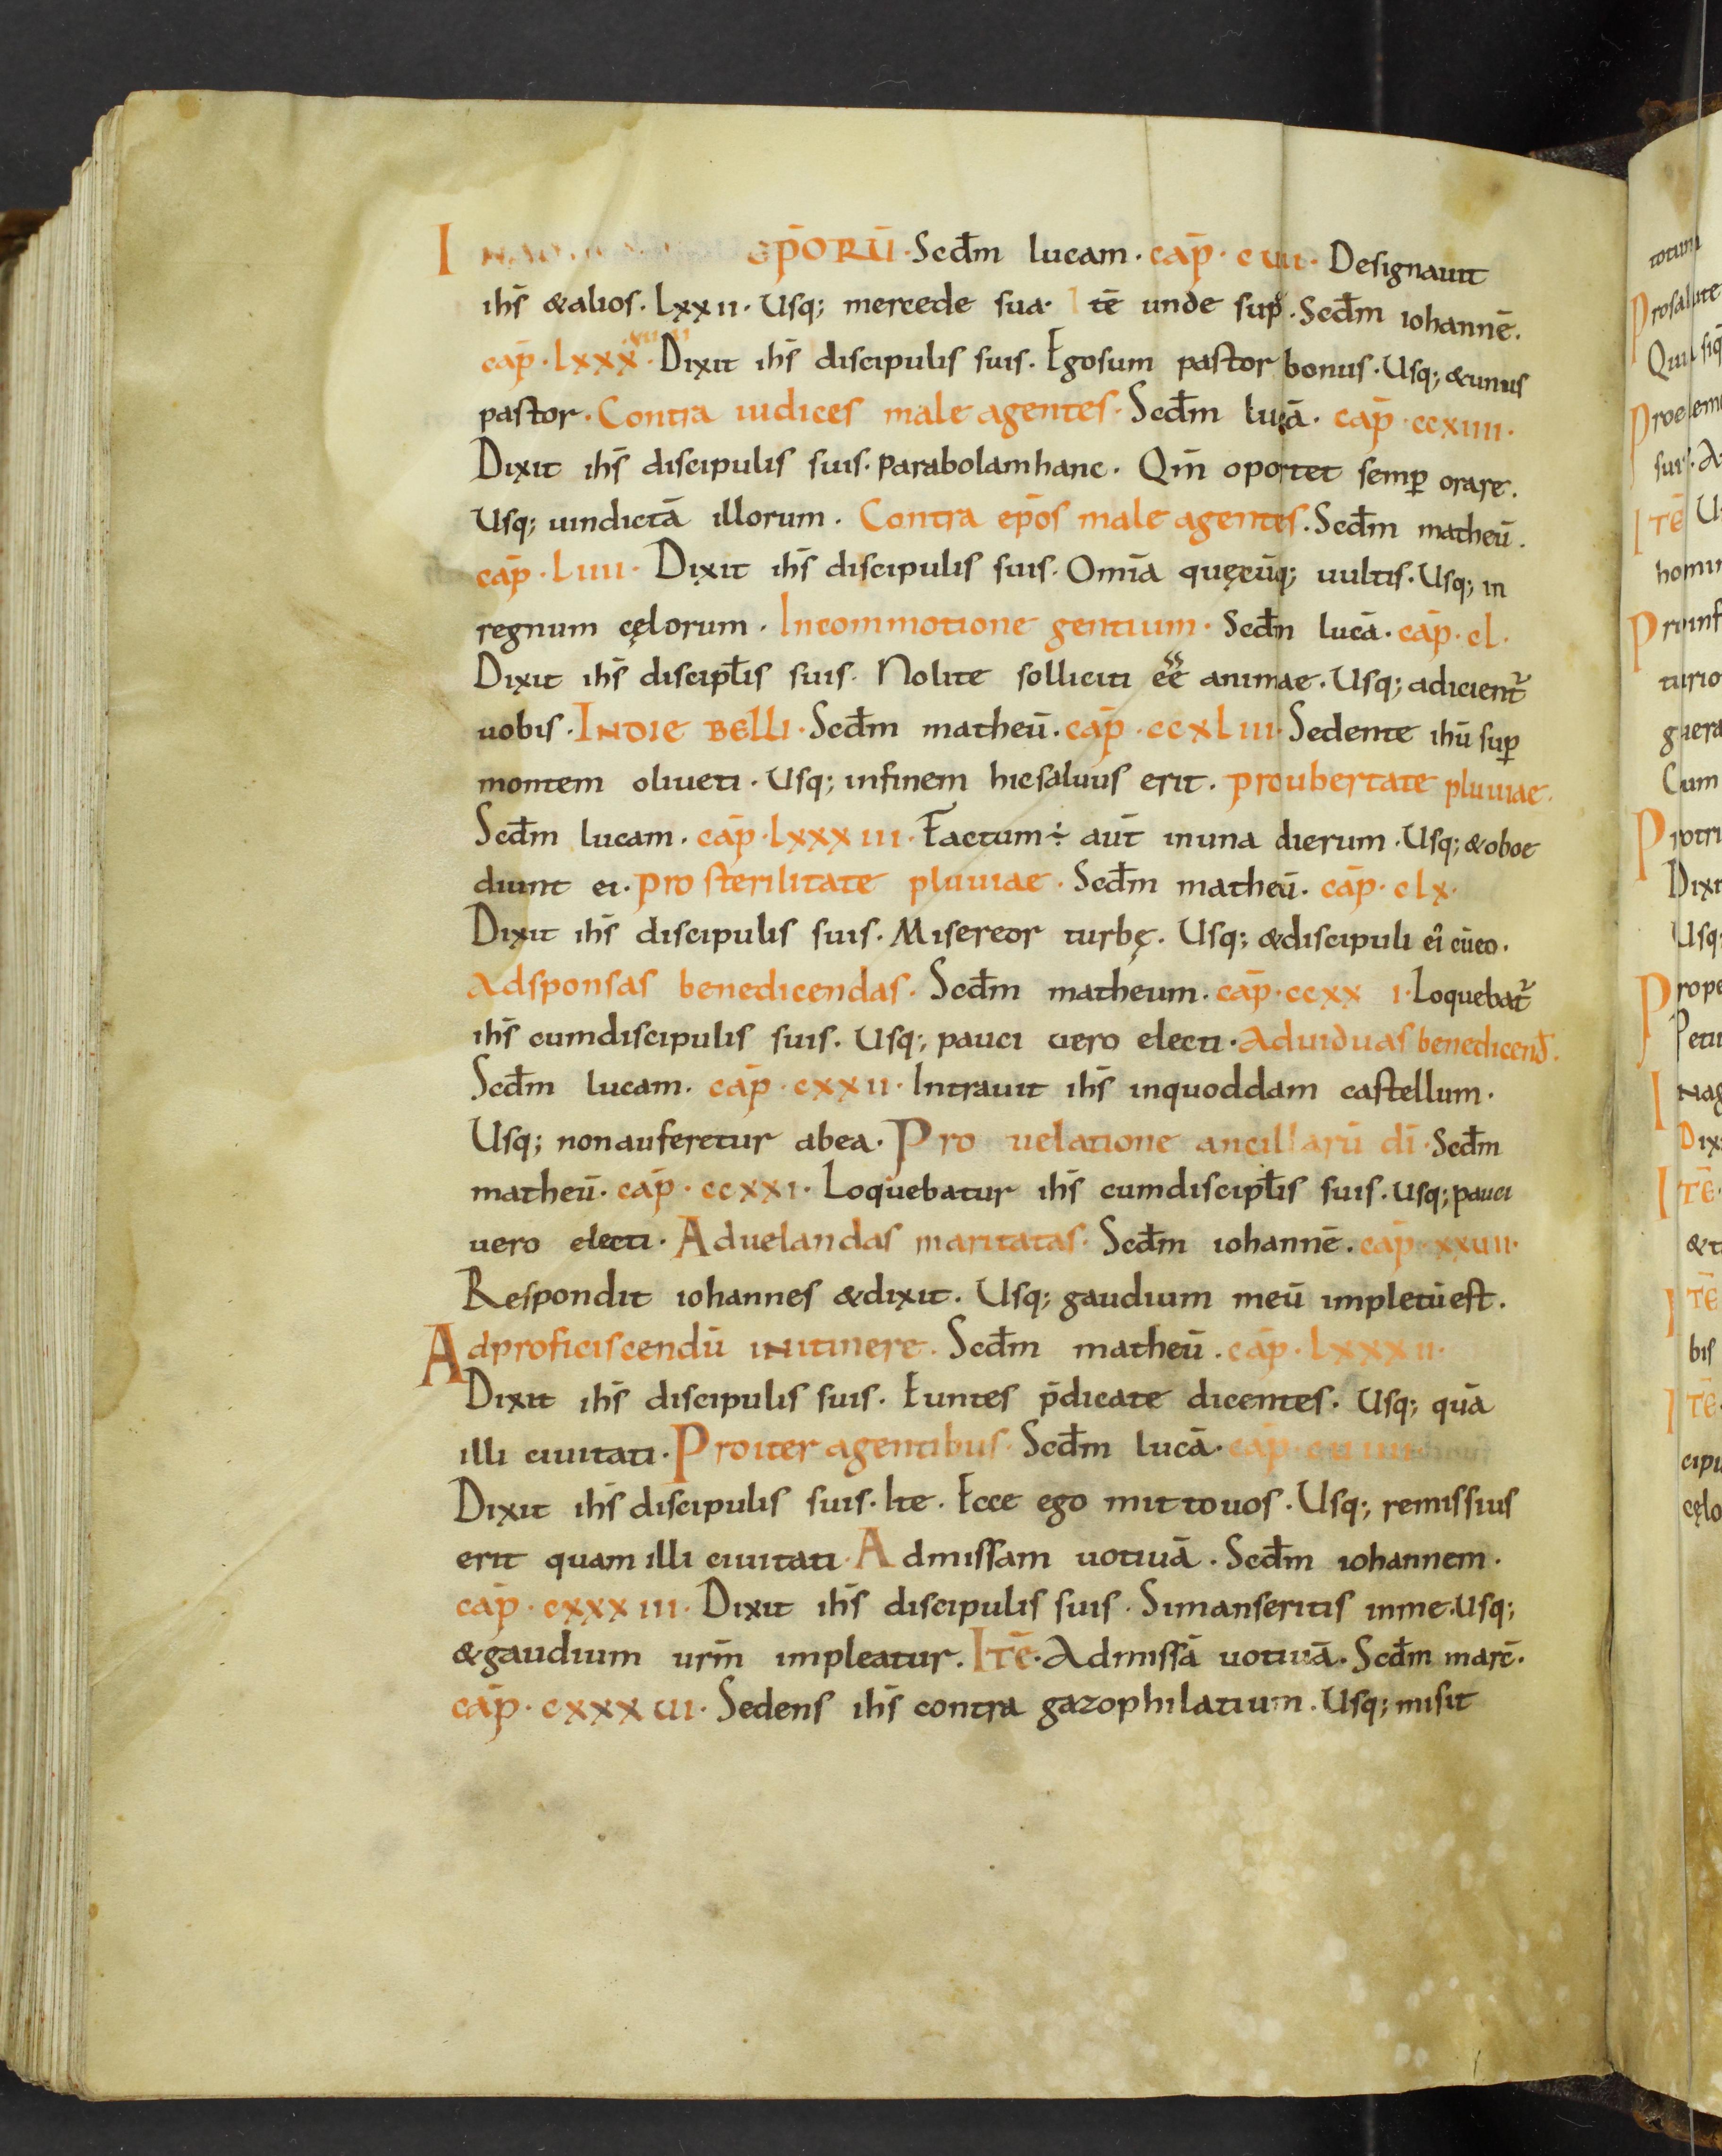 ēp̄orū · Scđm lucam · cap̄ · cuii · Designauit
ih̄s &alios · Lxxii · Usq; mercede sua · Itē unde sup͛ · Scđm iohannē.
cap̄ · Lxxx · Dixit ih̄s discipulis suis. Egosum pastor bonus · Usq; &unus
pastor · Contra iudices male agentes · Scđm lucā · cap̄ · ccxiiii ·
Dixit ih̄s discipulis suis · parabolamhanc · Qm̄ oportet semꝑ orare.
Usq; uindictā illorum · Contra ep̄os male agentes · Scđm matheū.
cap̄ · Liiii · Dixit ih̄s discipulis suis · Omīa quęcūq; uultis · Usq; in
regnum cęlorum · Incommotione gentium · Scđm lucā · cap̄ · cl ·
Dixit ih̄s discipłis suis · Nolite solliciti eē animae · Usq; adicient᷑
uobis · INDIE BELLI · Scđm matheū · cap̄ · ccxLiii · Sedente ihū suꝑ
montem oliueti · Usq; infinem hicsaluus erit · proubertate pluuiae ·
Scđm lucam · cap̄ · Lxxxiii · Factum÷ aut̄ inuna dierum · Usq; &oboe
diunt ei · pro sterilitate pluuiae · Scđm matheū · cap̄ · clx ·
Dixit ih̄s discipulis suis · Misereor turbę · Usq; &discipuli eī cūeo ·
Adsponsas benedicendas · Scđm matheum · cap̄ · ccxx i · Loquebat᷑
ih̄s cumdiscipulis suis · Usq; pauci uero electi · Aduiduas benedicenđ ·
Scđm lucam · cap̄ · cxxii · Intrauit ih̄s inquoddam castellum ·
Usq; nonauferetur abea · Pro uelatione ancillarū dī · Scđm
matheū · cap̄ · ccxxi · Loquebatur ih̄s cumdiscipłis suis · Usq; pauci
uero electi · Aduelandas maritatas · Scđm iohannē · cap̄ · xxuii ·
Respondit iohannes &dixit · Usq; gaudium meū impletūest ·
Adproficiscendū initinere · Scđm matheū · cap̄ · Lxxxii ·
Dixit ih̄s discipulis suis · Euntes p̄dicate dicentes · Usq; quā
illi ciuitati · Proiter agentibus · Scđm lucā · cap̄ · cuiiii
Dixit ih̄s discipulis suis · Ite · Ecce ego mittouos · Usq; remissius
erit quam illi ciuitati · Admissam uotiuā · Scđm iohannem ·
cap̄ · cxxxiii · Dixit ih̄s discipulis suis · Simanseritis inme · Usq;
&gaudium urm̄ impleatur · Itē · Admissā uotiuā · Scđm marc̄ ·
cap̄ · cxxxui · Sedens ih̄s contra gazophilatium · Usq; misit